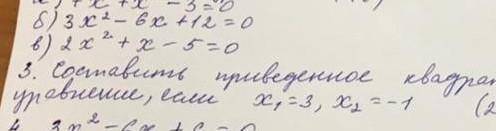 - 3 = 0
б) 3x² - 6x + 12 = 0
в) 2x² + x - 5 = 0
3. Составить приведенное квадрат
уравнение, если x₁ = 3, x₂ = -1 (2
4. 3x² - 6x + c = 0